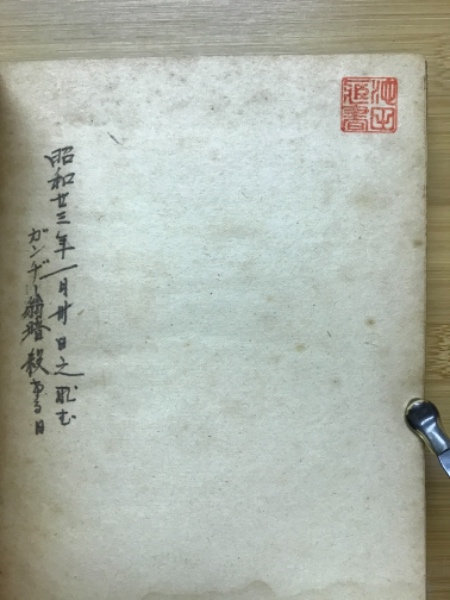 池田
蔵書
昭和廿三年一月卅日之む
ガンヂー翁暗殺さる日